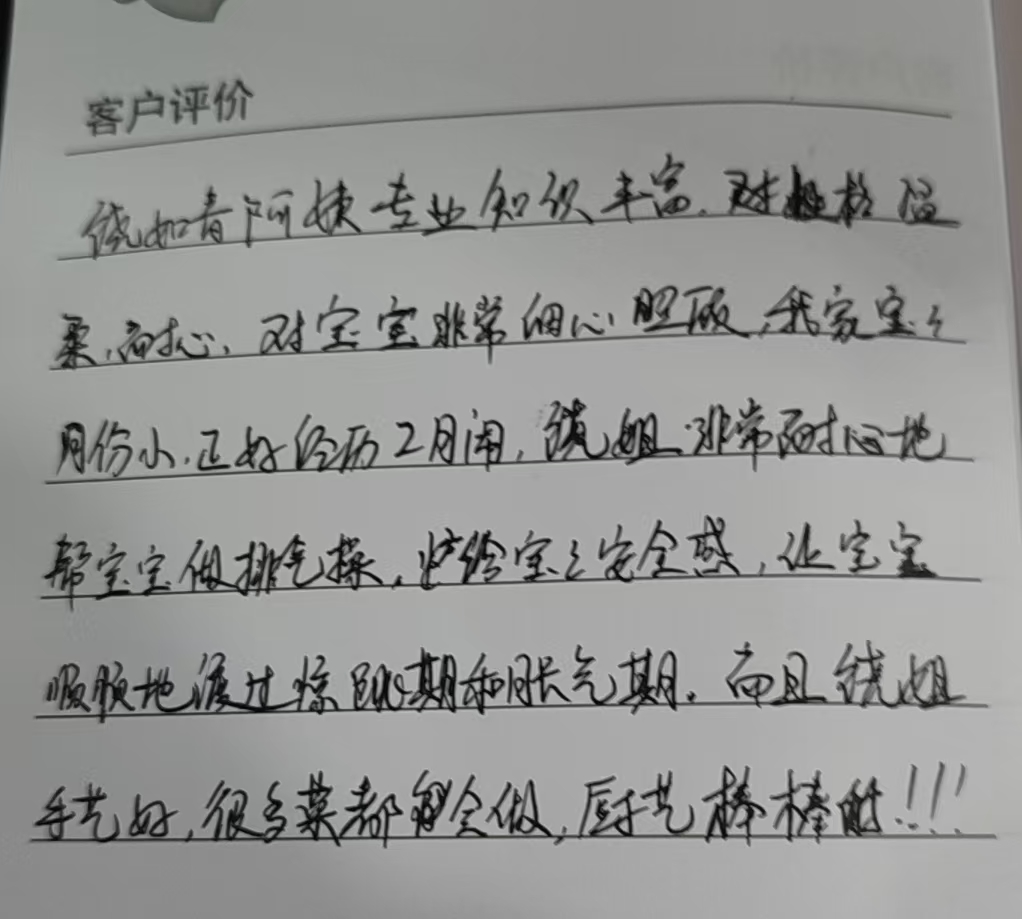 客户评价
饶如青阿姨专业知识丰富,对性格温
柔,耐心,对宝宝非常细心照顾,我家宝々
月份小,正好经历2月闹,饶姐非常耐心地
帮宝宝做排气操,给宝々安全感,让宝宝
顺顺地渡过惊跳期和胀气期。而且饶姐
手艺好,很多菜都会做,厨艺棒棒的!!!